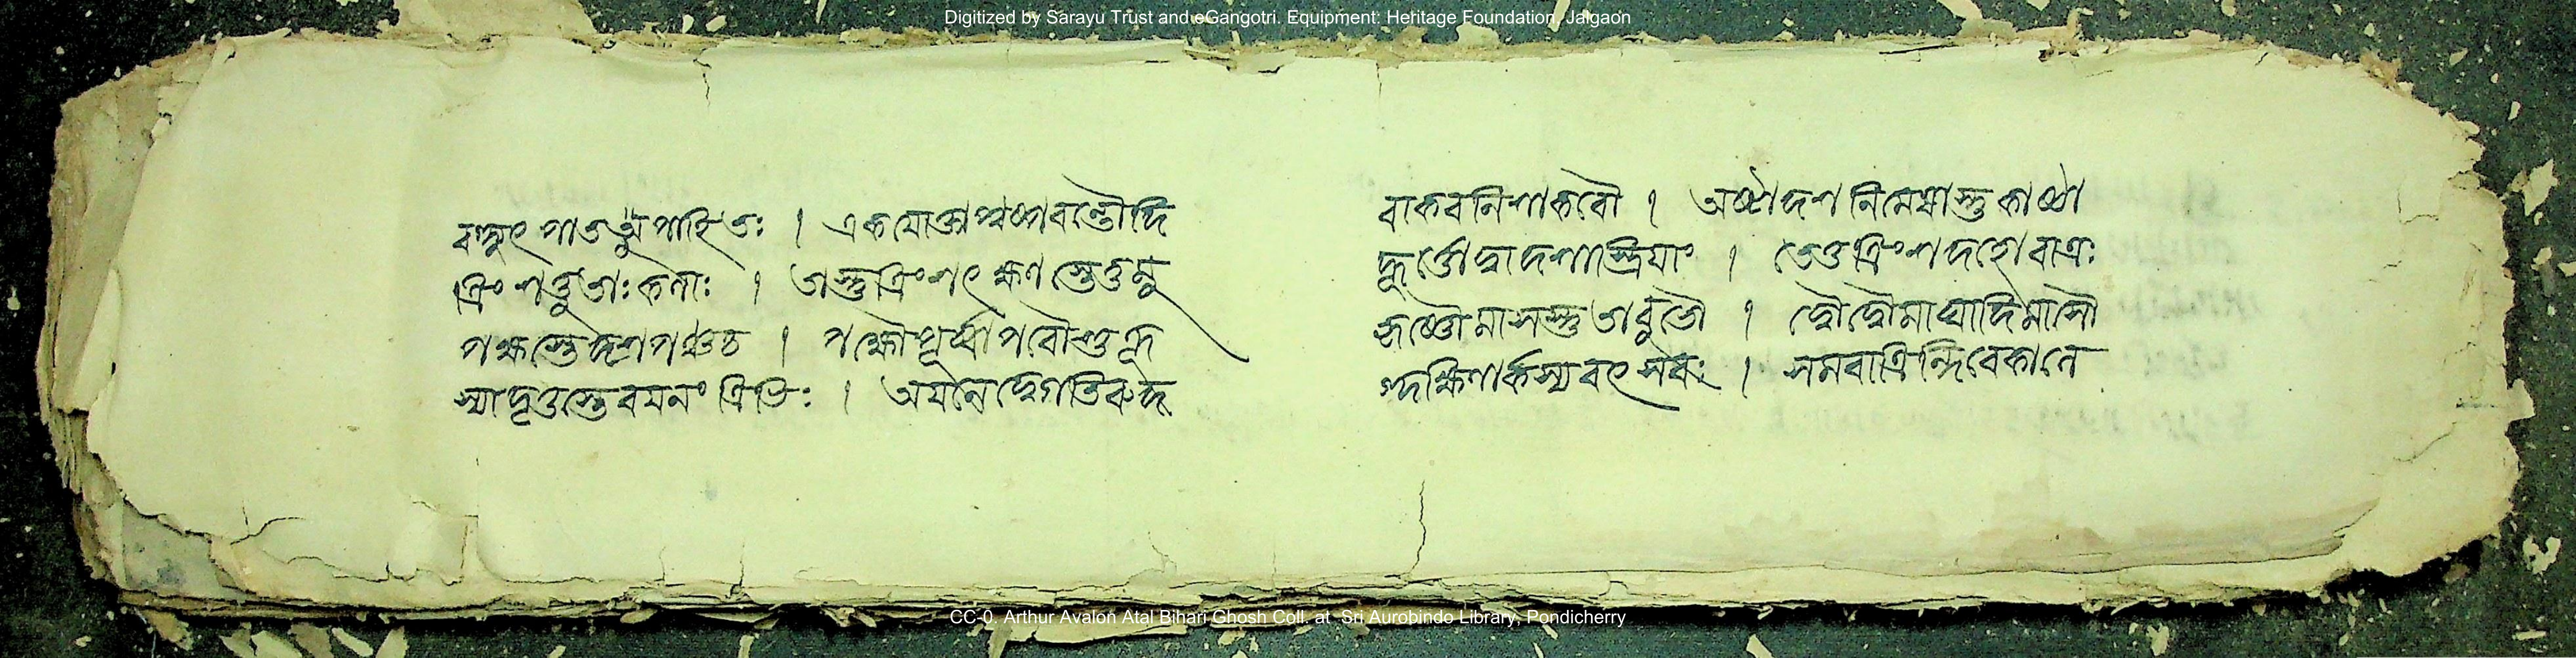 Digitized by Sarayu Trust and eGangotri. Equipment: Heritage Foundation, Jaigaon
বহ্ন্যুৎপাতউপাহিতঃ । একযোক্ত্যাপুষ্পবন্তৌদি বাকরনিশাকরৌ । অষ্টাদশনিমেষাস্তুকাষ্ঠা
ত্রিংশত্তুতাঃকলাঃ । তাস্তুত্রিংশৎক্ষণস্তেতুমু হূর্ত্তোদ্বাদশাস্ত্রিয়াং । তেতুত্রিংশদহোরাত্রঃ
পক্ষস্তেদশপঞ্চচ । পক্ষৌপূর্ব্বাপরৌশুক্ল কৃষ্ণৌমাসস্তুতাবুভৌ । দ্বৌদ্বৌমাঘাদিমাসৌ
স্যাদৃতুস্তৈরয়নংত্রিভিঃ । অয়নেদ্বেগতিরুদ গ্দক্ষিণার্কস্যবৎসরঃ । সমরাত্রিন্দিবেকালে
CC-0. Arthur Avalon Atal Bihari Ghosh Coll. at Sri Aurobindo Library, Pondicherry